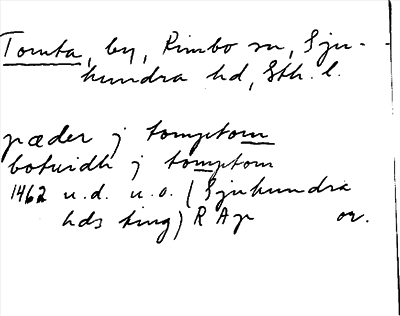 Tomta, by, Rimbo sn, Sju-
hundra hd, Sth. l.
pæder j tomptom
botuidh j tomptom
1462 u.d. u.o. (Sjuhundra
hds ting) RAp or.